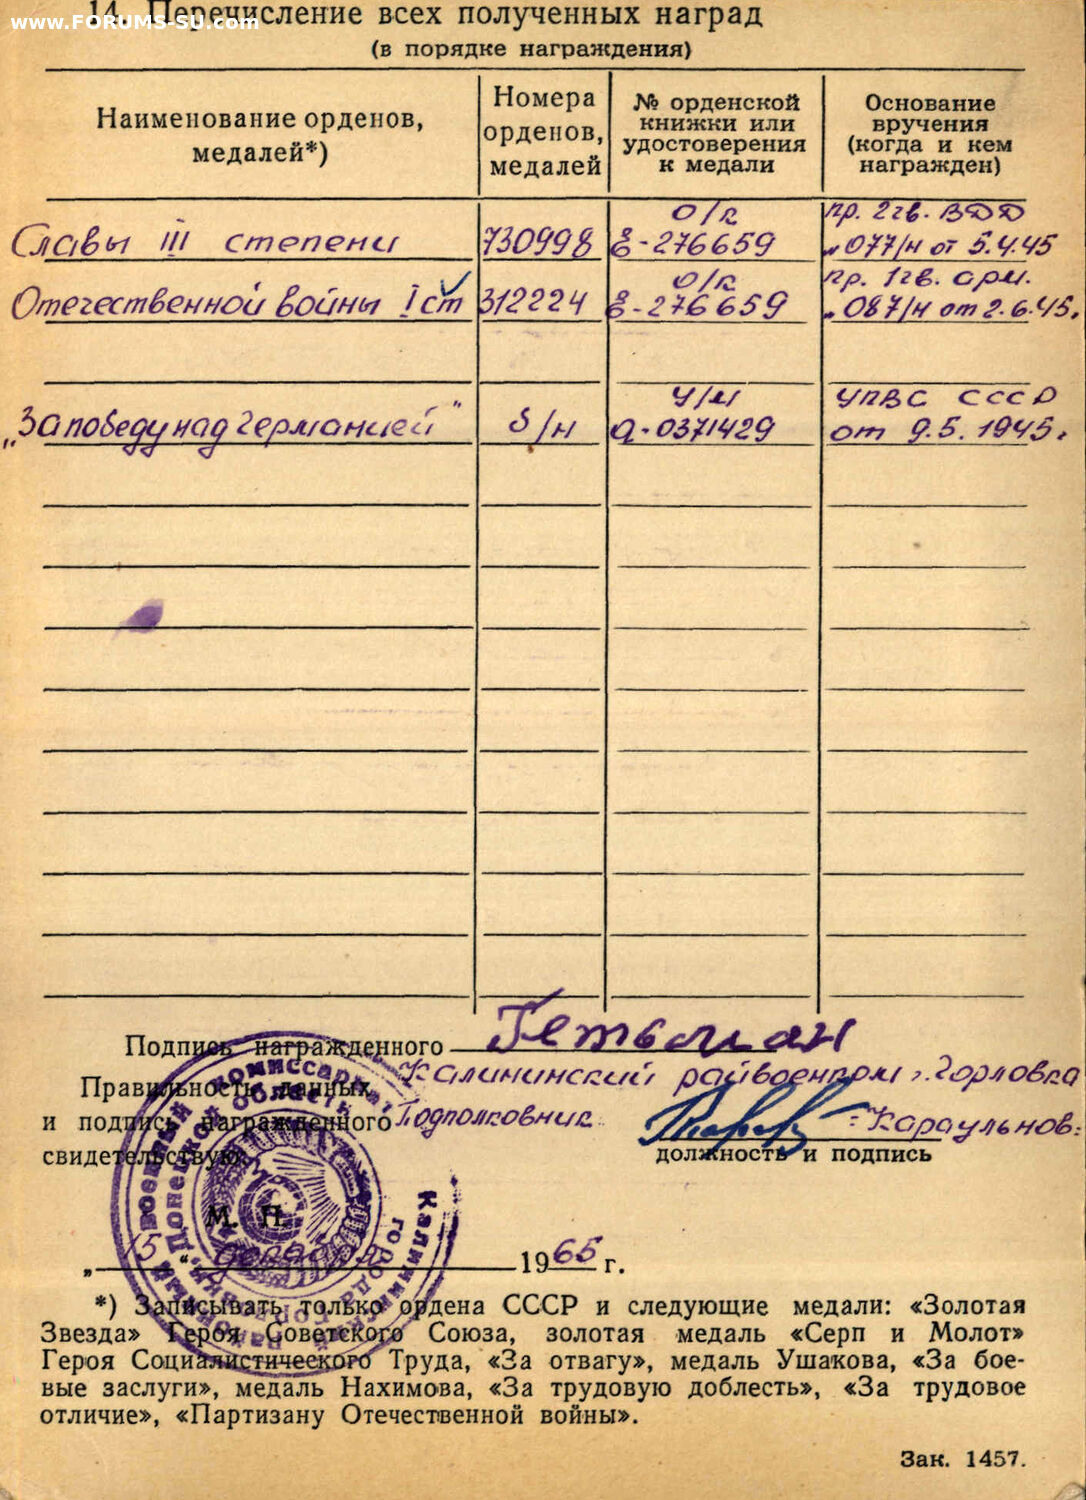 14. Перечисление всех полученных наград
www.FORUMS-SU.com
(в порядке награждения)
Наименование орденов, медалей*)
Номера орденов, медалей
№ орденской книжки или удостоверения к медали
Основание вручения (когда и кем награжден)
Славы III степени 730998 О/к Е-276659 пр. 2 гв. ВДД „077/н от 5.4.45
Отечественной войны I ст 312224 О/к Е-276659 пр. 1 гв. арм. „087/н от 2.6.45.
„За победу над Германией" б/н У/м А-0371429 УПВС СССР от 9.5.1945.
Подпись награжденного Гетьман
Правильность данных Калининский райвоенком г. Горловка
и подпись награжденного Подполковник - Караульнов:
свидетельствую:
должность и подпись
М. П.
„15" декабря 1965 г.
военный комиссариат
Донецкой области
Калининский
города
*) Записывать только ордена СССР и следующие медали: «Золотая
Звезда» Героя Советского Союза, золотая медаль «Серп и Молот»
Героя Социалистического Труда, «За отвагу», медаль Ушакова, «За бое-
вые заслуги», медаль Нахимова, «За трудовую доблесть», «За трудовое
отличие», «Партизану Отечественной войны».
Зак. 1457.